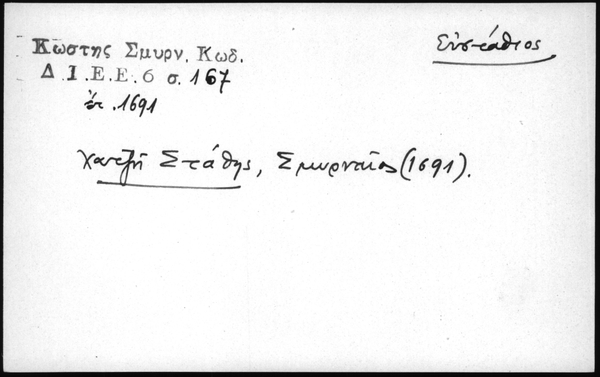 Εὐστάθιος
Κωστης Σμυρν. Κωδ.
Δ.Ι.Ε.Ε.6 σ.167
ἔτ.1691
Χατζῆ Στάθης, Σμυρναῖος (1691).